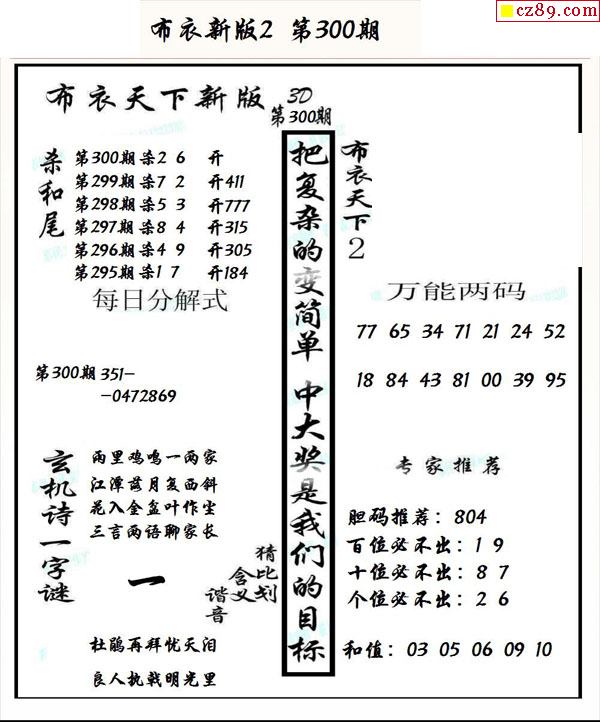 cz89.com
布衣新版2 第300期
布衣天下新版
3D
第300期
杀和尾
第300期杀2 6 开
第299期杀7 2 开411
第298期杀5 3 开777
第297期杀8 4 开315
第296期杀4 9 开305
第295期杀1 7 开184
每日分解式
第300期351-
-0472869
玄机诗一字谜
雨里鸡鸣一两家
江潭落月复西斜
花入金盆叶作尘
三言两语聊家长
一
猜比划
含义
谐音
杜鹃再拜忧天泪
良人执戟明光里
把复杂的变简单 中大奖是我们的目标
布衣天下2
万能两码
77 65 34 71 21 24 52
18 84 43 81 00 39 95
专家推荐
胆码推荐：804
百位必不出：1 9
十位必不出：8 7
个位必不出：2 6
和值：03 05 06 09 10